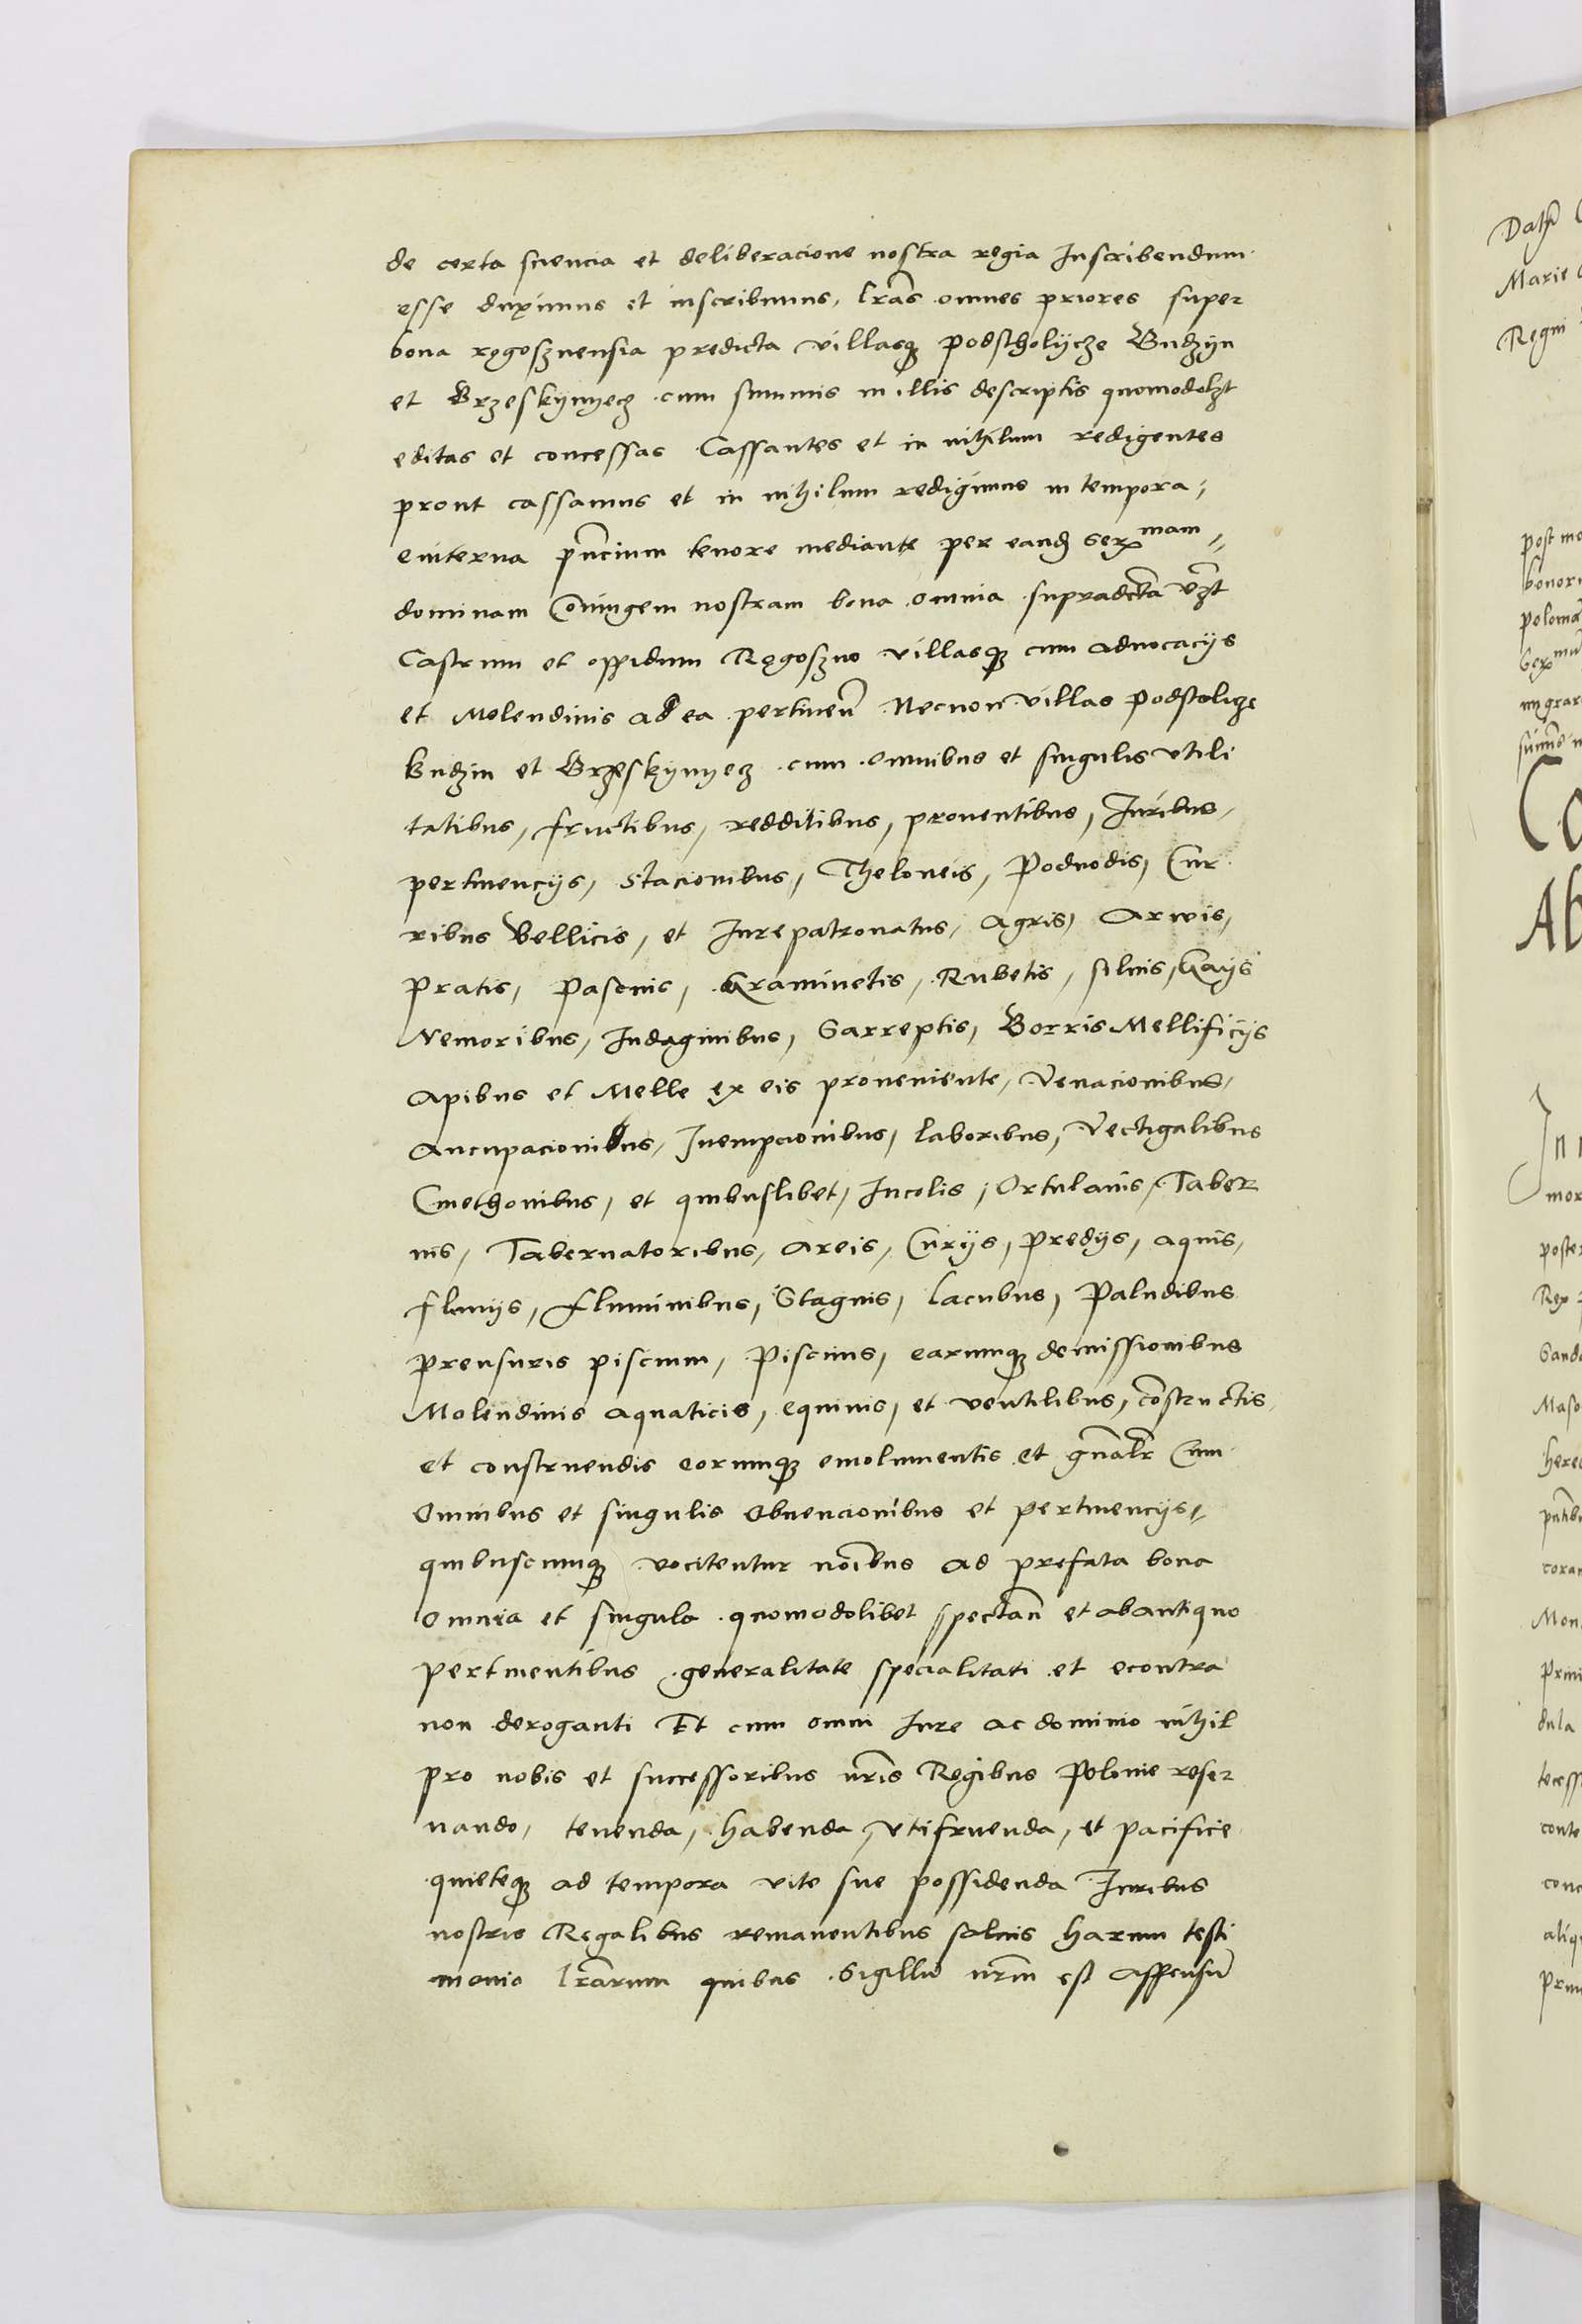 de certa sciencia et deliberacione nostra regia Inscribendum
esse duximus et inscribimus, lras omnes priores super
bona rogosznensia predicta villasq3 Podstholycze Budzyn
et Brzeskynyecz cum summis in illis descriptis quomodolzt
editas et concessas Cassantes et in nihilum redigentes
prout cassamus et in nihilum redigimus in tempora,
euiterna pncium tenore mediante per eand serxmam,
dominam Coniugem nostram bona omnia supradcta vzt
Castrum et oppidum Rogoszno villasq3 cum aduocacijs
et Molendinis ad ea pertinen Necnon villas Podstolicze
Budzin et Brzeskynyecz cum omnibus et singulis vtili
tatibus, fructibus, redditibus, prouentibus, Iuribus,
pertinencijs, Stacionibus, Theloneis, Poduodis, Cur
ribus Bellicis, et Iurepatronatus, Agris, Arwis,
Pratis, Pascuis, Graminetis, Rubetis, siluis, Gays
Nemoribus, Indaginibus, Garreptis, Borris Mellificijs
Apibus et Melle ex eis proueniente, Venacionibus,
Aucupacionibus, Inempcionibus, laboribus, Vectigalibus
Cmethonibus, et quibuslibet, Incolis, Ortulanis, Taber
nis, Tabernatoribus, Areis, Curijs, Predijs, aquis,
fluuijs, fluminibus, Stagnis, lacubus, Paludibus
prensuris piscium, Piscinis, earumq3 demissionibus
Molendinis aquaticis, equinis, et ventilibus, costructis,
et construendis eorumq3 emolumentis et gnalr Cum
Omnibus et singulis Obuencionibus et pertinencijs,
quibuscumq3 vocitentur noibus ad prefata bona
omnia et singula quomodolibet spectan et abantiquo
pertinentibus generalitate specialitati et econtra
non deroganti Et cum omni Iure ac dominio nihil
pro nobis et successoribus nris Regibus Polonie reser
uando, tenenda, habenda, vtifruenda, et pacifice
quieteq3 ad tempora vite sue possidenda Iuribus
nostris Regalibus remanentibus saluis harum testi
monio lrarum quibus Sigillu nrm est appensu
Marie
Regni